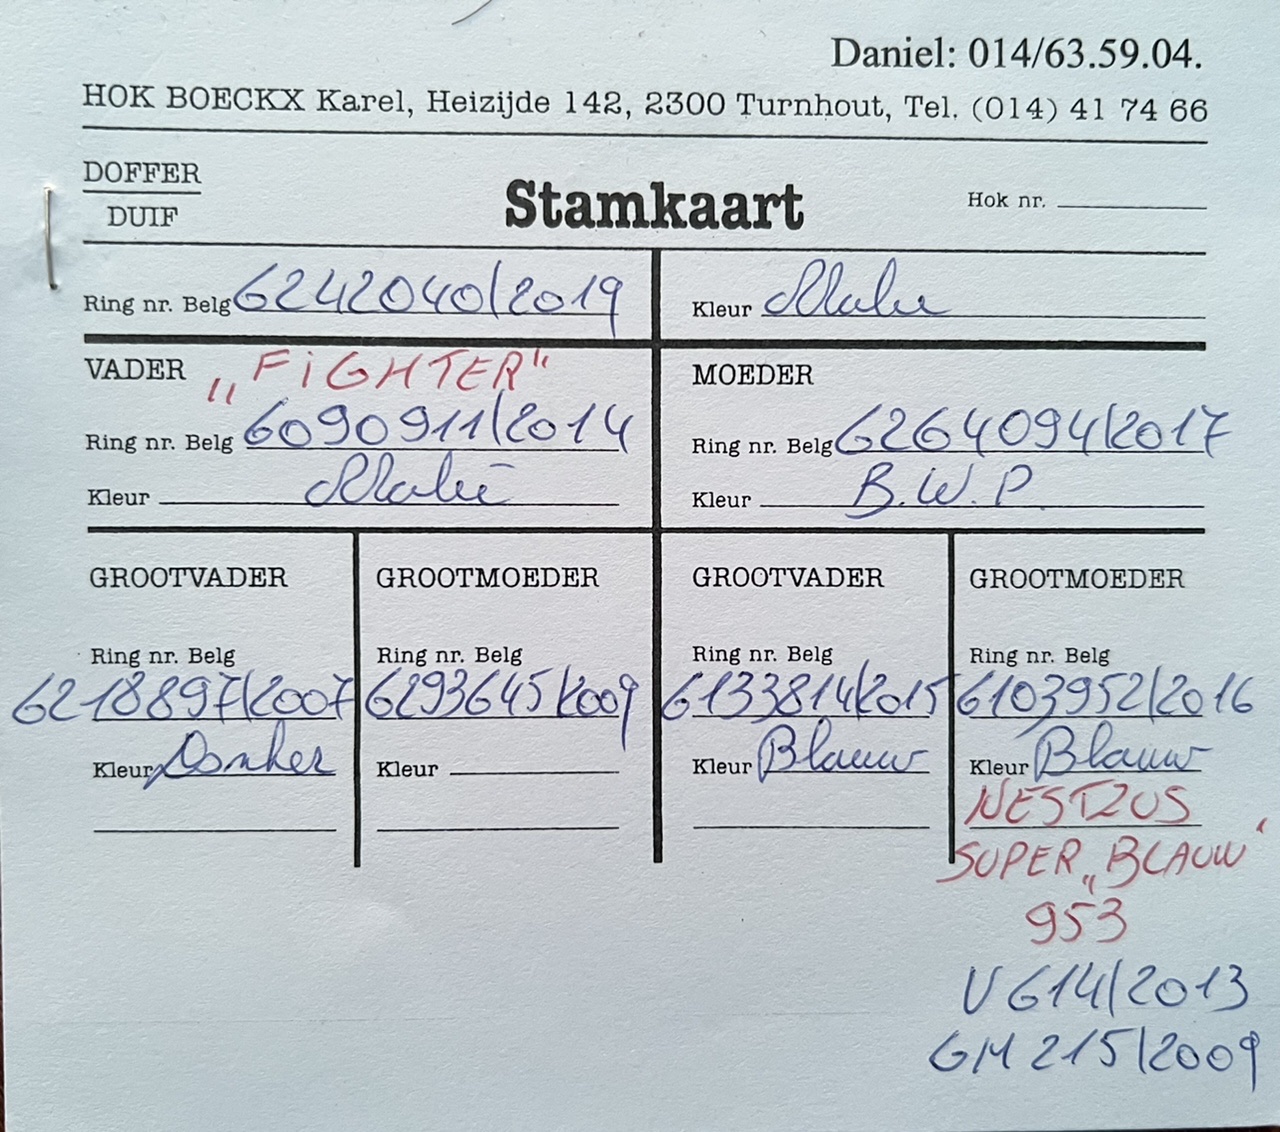 Daniel: 014/63.59.04.
HOK BOECKX Karel, Heizijde 142, 2300 Turnhout, Tel. (014) 41 74 66
DOFFER
DUIF
Stamkaart
Hok nr.
Ring nr. Belg 6242040/2019
Kleur
VADER „FIGHTER“
Ring nr. Belg 6090911/2014
Kleur
MOEDER
Ring nr. Belg 6264094/2017
Kleur B.W.P
GROOTVADER
Ring nr. Belg
6218897/2007
Kleur Donker
GROOTMOEDER
Ring nr. Belg
6293645/2009
Kleur
GROOTVADER
Ring nr. Belg
6133814/2015
Kleur Blauw
GROOTMOEDER
Ring nr. Belg
6103952/2016
Kleur Blauw
NESTZUS
SUPER „BLAUW‘
953
V 614/2013
GM 215/2009